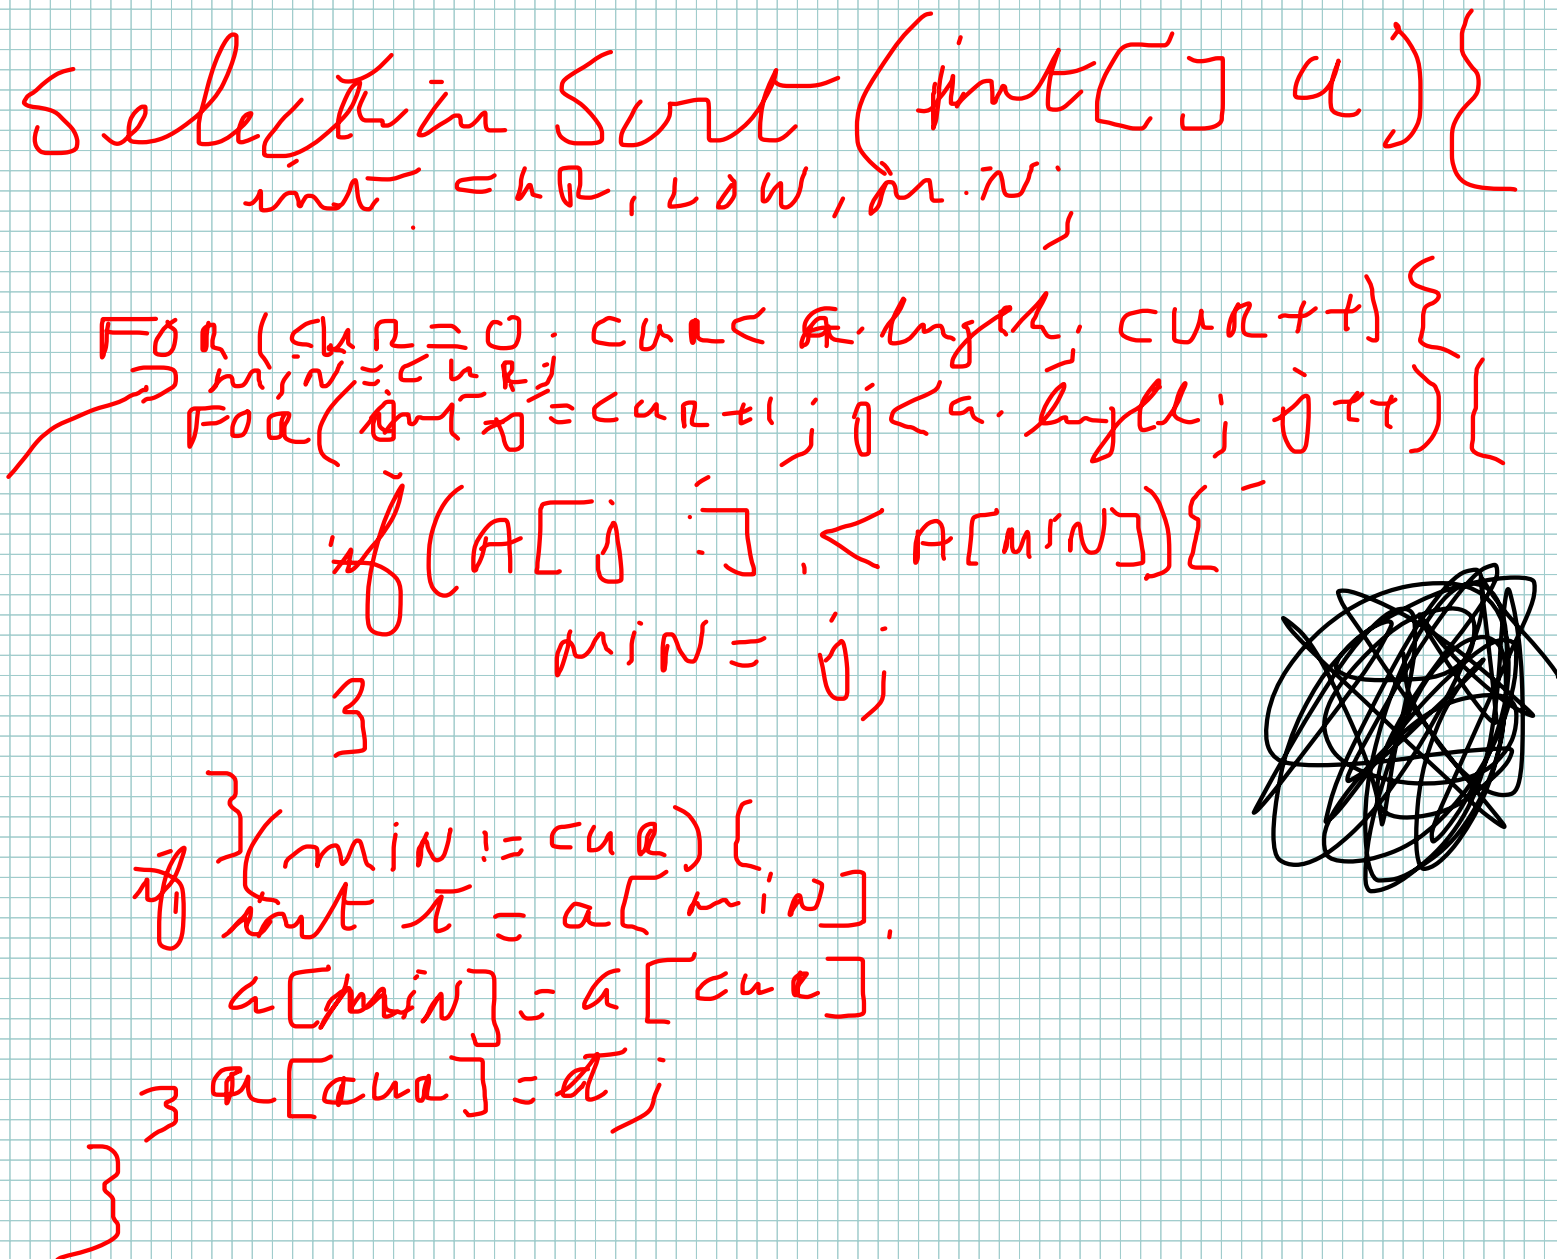 Selection Sort (int[] a) {
int cur, low, min;
For (cur = 0; cur < a.length; cur++) {
min = cur;
For (int j = cur + 1; j < a.length; j++) {
if (A[j] < A[min]) {
min = j;
}
}
if (min != cur) {
int t = a[min];
a[min] = a[cur]
a[cur] = t;
}
}